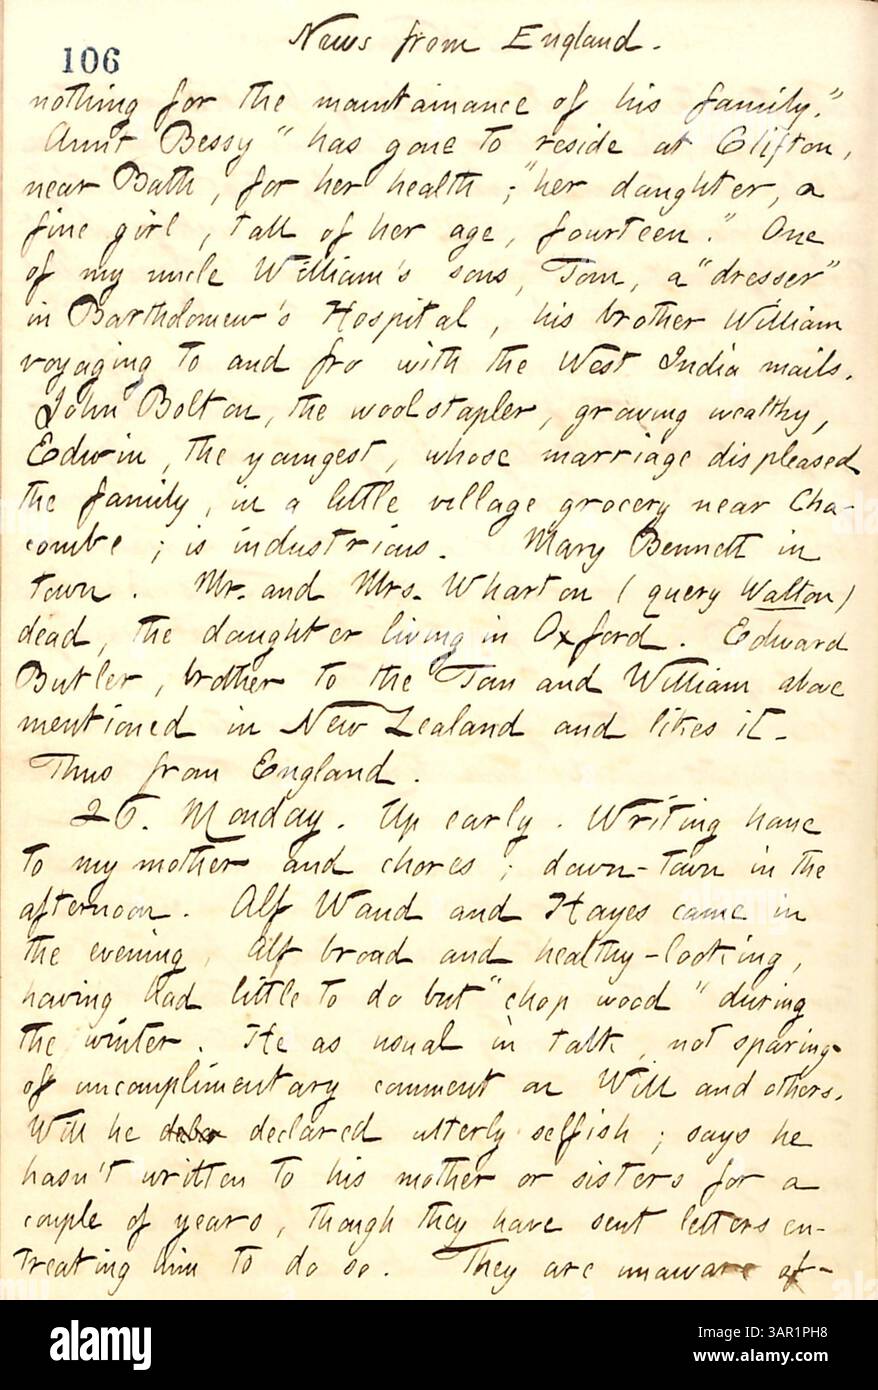 News from England.
106
nothing for the maintainance of his family."
Aunt Bessy" has gone to reside at Clifton,
near Bath, for her health; "her daughter, a
fine girl, tall of her age, fourteen." One
of my uncle William's sons, Tom, a "dresser"
in Bartholomew's Hospital, his brother William
voyaging to and fro with the West India mails.
John Bolton, the woolstapler, growing wealthy,
Edwin, the youngest, whose marriage displeased
the family, in a little village grocery near Cha-
combe; is industrious. Mary Bennett in
town. Mr. and Mrs. Wharton (query Walton)
dead, the daughter living in Oxford. Edward
Butler, brother to the Tom and William above
mentioned in New Zealand and likes it.
Thus from England.
26. Monday. Up early. Writing home
to my mother and chores; down-town in the
afternoon. Alf Waud and Hayes came in
the evening, Alf broad and healthy-looking,
having had little to do but "chop wood" during
the winter. He as usual in talk, not sparing
of uncomplimentary comment on Will and others.
Will he declared utterly selfish; says he
hasn't written to his mother or sisters for a
couple of years, though they have sent letters en-
treating him to do so. They are unaware of
alamy
Image ID: 3AR1PH8
www.alamy.com